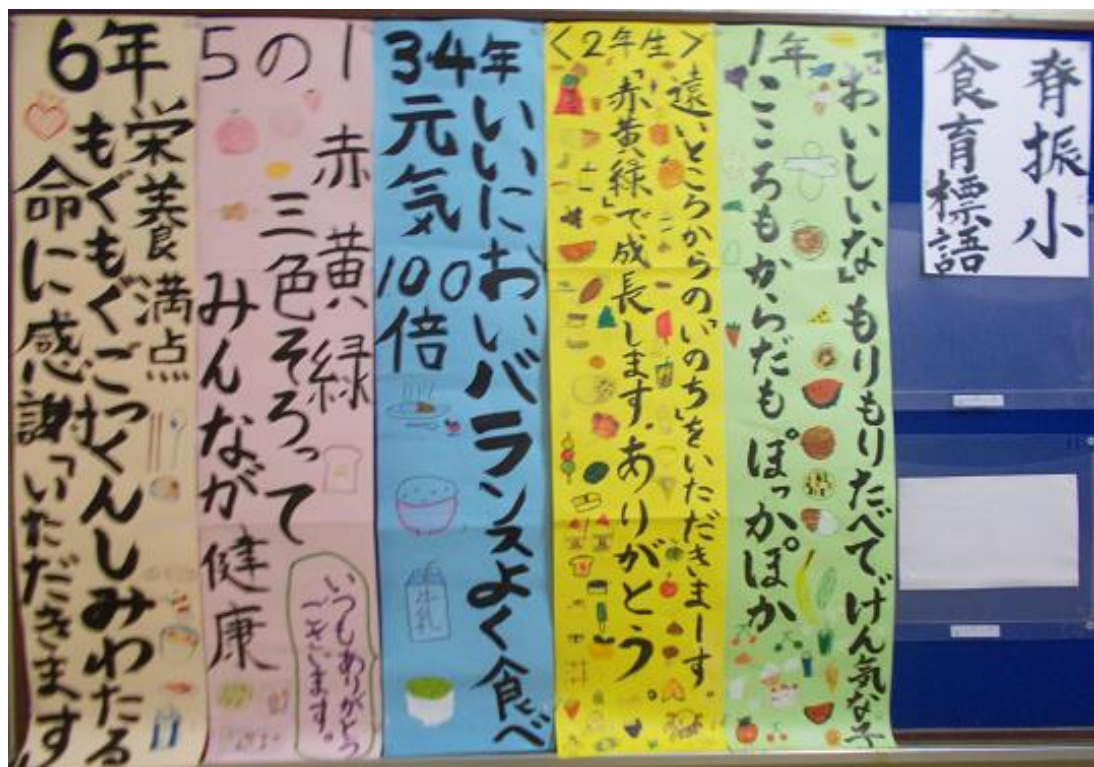 脊振小
食育標語
1年
「おいしいな」もりもりたべてげん気な子
こころもからだもぽっかぽか
＜2年生＞
遠いところからの「いのち」をいただきまーす。
「赤黄緑」で成長します。ありがとう。
3・4年
いいにおいバランスよく食べ
元気100倍
牛乳
5の1
赤 黄 緑
三色そろって
みんなが健康
いつもありがとう
ございます。
6年
栄養満点
もぐもぐごっくんしみわたる
命に感謝「いただきます」